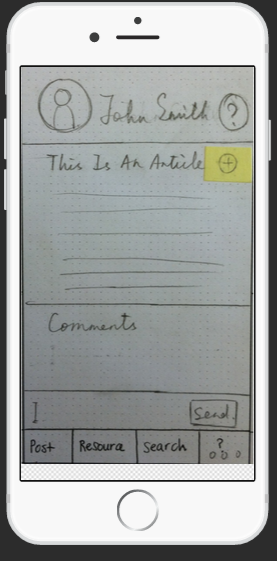 John Smith ?
This Is An Article +
Comments
Send
Post Resource Search ?